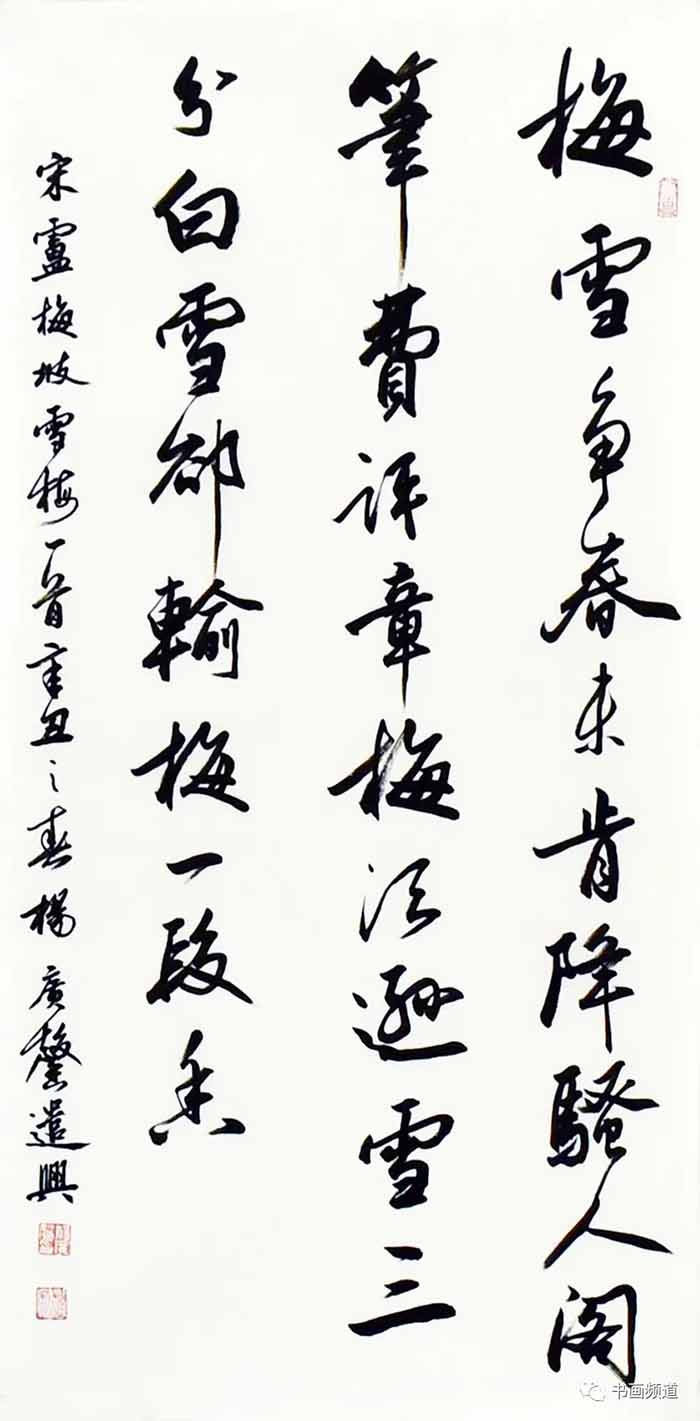 梅雪争春未肯降騷人阁
筆費評章梅須遜雪三
分白雪卻輸梅一段香
宋盧梅坡雪梅一首辛丑之春楊廣馨遣興
书画频道